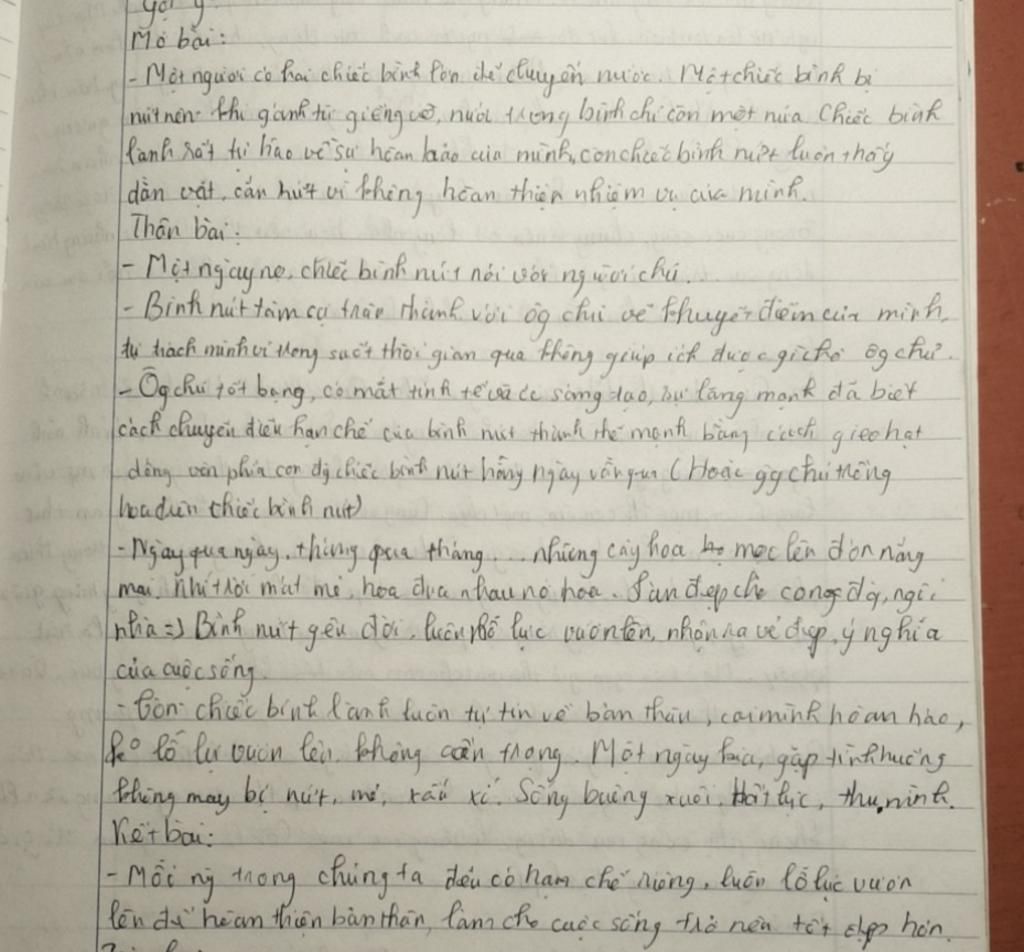 Gợi ý
Mở bài:
- Một người có hai chiếc bình lớn để chuyển nước. Một chiếc bình bị
nứt nên khi gánh từ giếng về, nước trong bình chỉ còn một nửa Chiếc bình
lành rất tự hào về sự hoàn hảo của mình, còn chiếc bình nứt luôn thấy
dằn vặt, cắn rứt vì không hoàn thiện nhiệm vụ của mình.
Thân bài:
- Một ngày nọ, chiếc bình nứt nói với người chủ...
- Bình nứt tâm sự thành với ôg chủ về khuyết điểm của mình,
tự trách mình vì trong suốt thời gian qua không giúp ích được gì cho ôg chủ.
- Ôg chủ tốt bụng, có mắt tinh tế và óc sáng tạo, sự lãng mạn đã biết
cách chuyển điều hạn chế của bình nứt thành thế mạnh bằng cách gieo hạt
dống phía con đg chiếc bình nứt hằng ngày vẫn qua (Hoặc chủ trồng
hoa chiếc bình nứt)
- Ngày qua ngày, tháng qua tháng... những cây hoa mọc lên đón nắng
mai, khí trời mát mẻ, hoa đua nhau nở hoa. Làm đẹp cho cong đg, ngôi
nhà => Bình nứt yêu đời, luôn nỗ lực vươn lên, nhận ra vẻ đẹp, ý nghĩa
của cuộc sống.
- Còn chiếc bình lành luôn tự tin về bản thân, coi mình hoàn hảo,
ko lỗ lự vươn lên, không cẩn trọng. Một ngày kia, gặp tình huống
không may bị nứt, mẻ, xấu xí. Sống buông xuôi, thu mình.
Kết bài:
- Mỗi ng trong chúng ta đều có hạn chế riêng, luôn lỗ lực vươn
lên để hoàn thiện bản thân, làm cho cuộc sống trở nên tốt đẹp hơn.